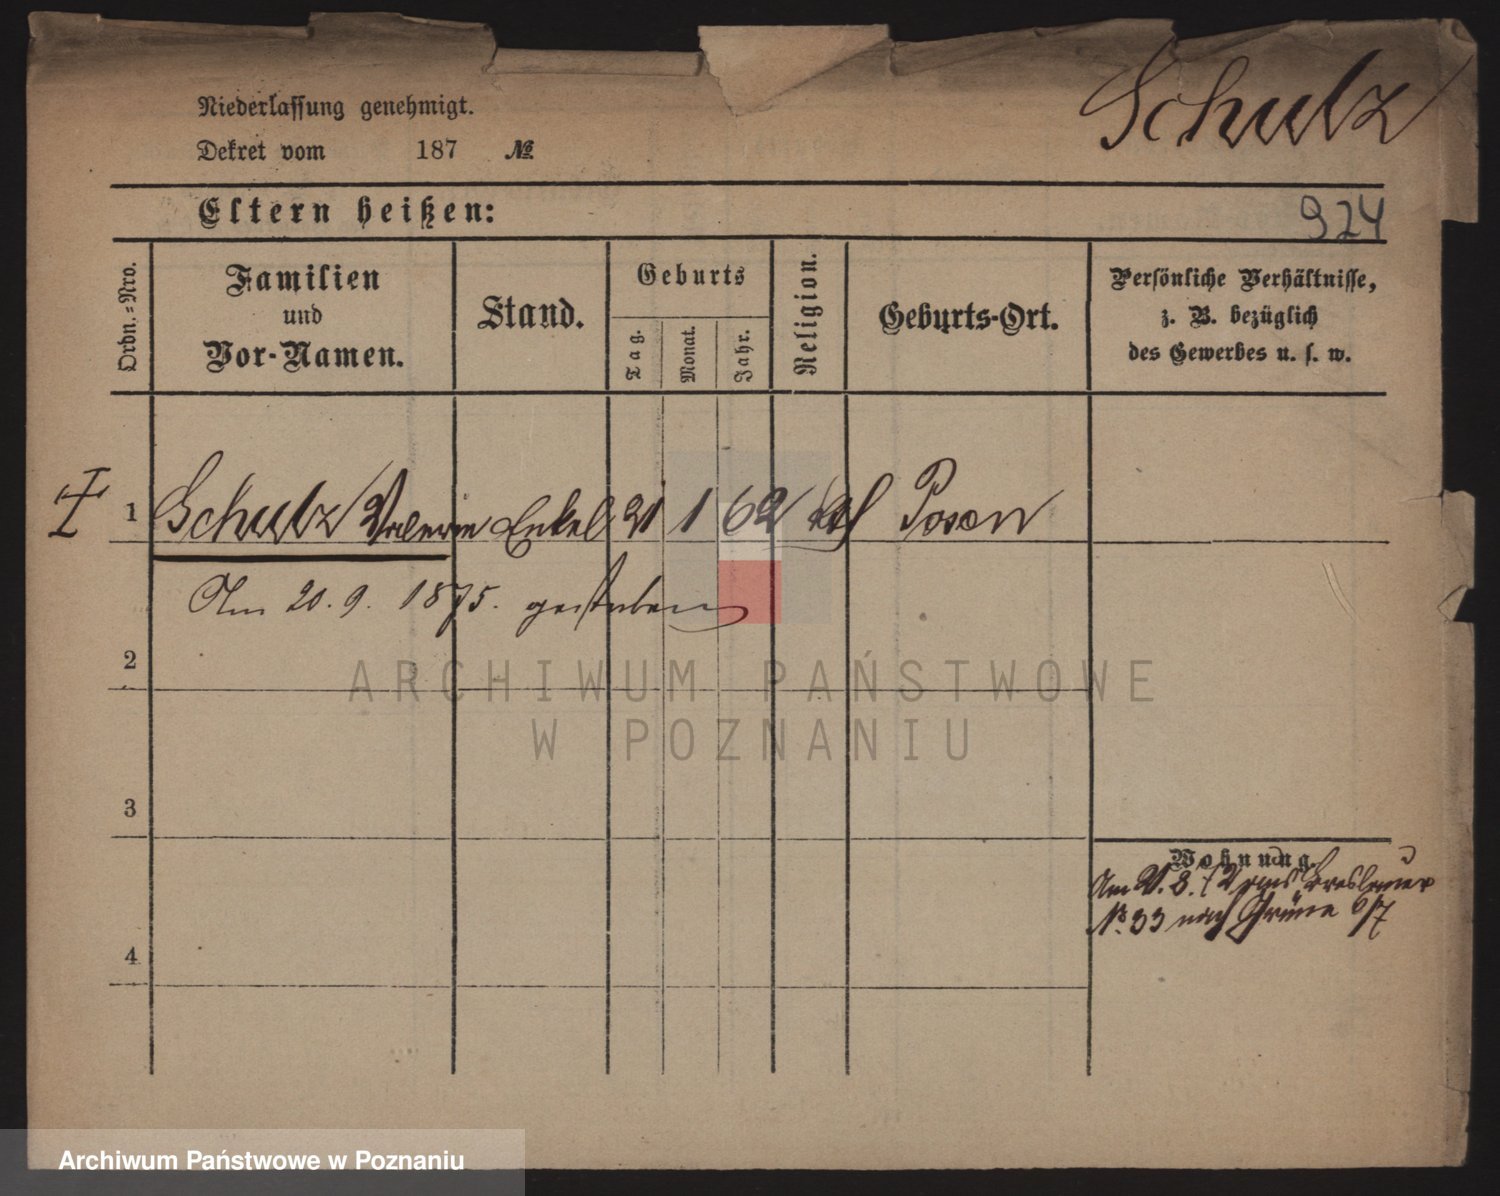 Schulz
Niederlassung genehmigt.
Dekret vom 187 №
Eltern heißen:
924
Ordn.=Nro.
Familien
und
Vor-Namen.
Stand.
Geburts
Tag.
Monat.
Jahr.
Religion.
Geburts-Ort.
Persönliche Verhältnisse,
z. B. bezüglich
des Gewerbes u. s. w.
1 Schulz Enkel 21 1 62 Posen
Am 20. 9. 1875. gestorben
2
ARCHIWUM PAŃSTWOWE
W POZNANIU
3
Wohnung.
№ 33 nach Grüne 6/7
4
Archiwum Państwowe w Poznaniu